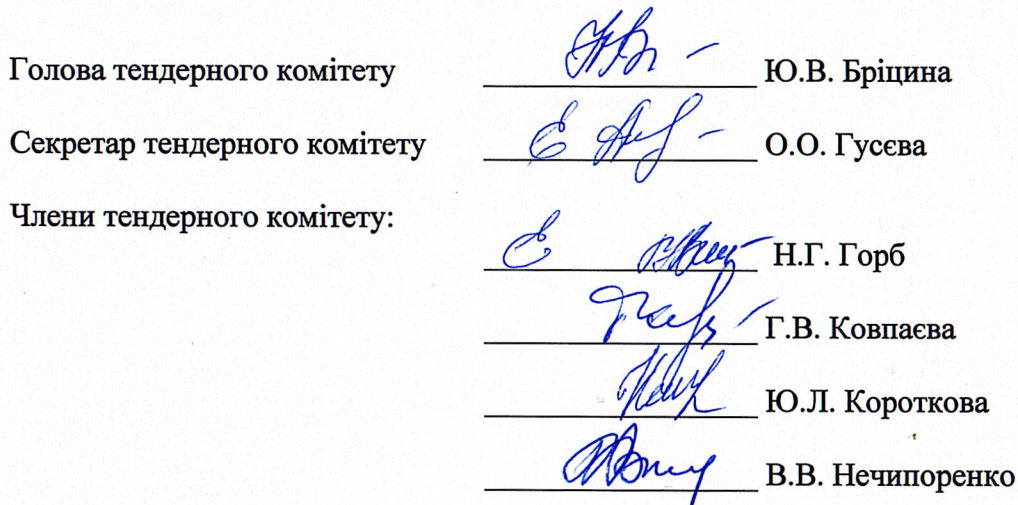 Голова тендерного комітету Ю.В. Бріцина
Секретар тендерного комітету О.О. Гусєва
Члени тендерного комітету:
Н.Г. Горб
Г.В. Ковпаєва
Ю.Л. Короткова
В.В. Нечипоренко